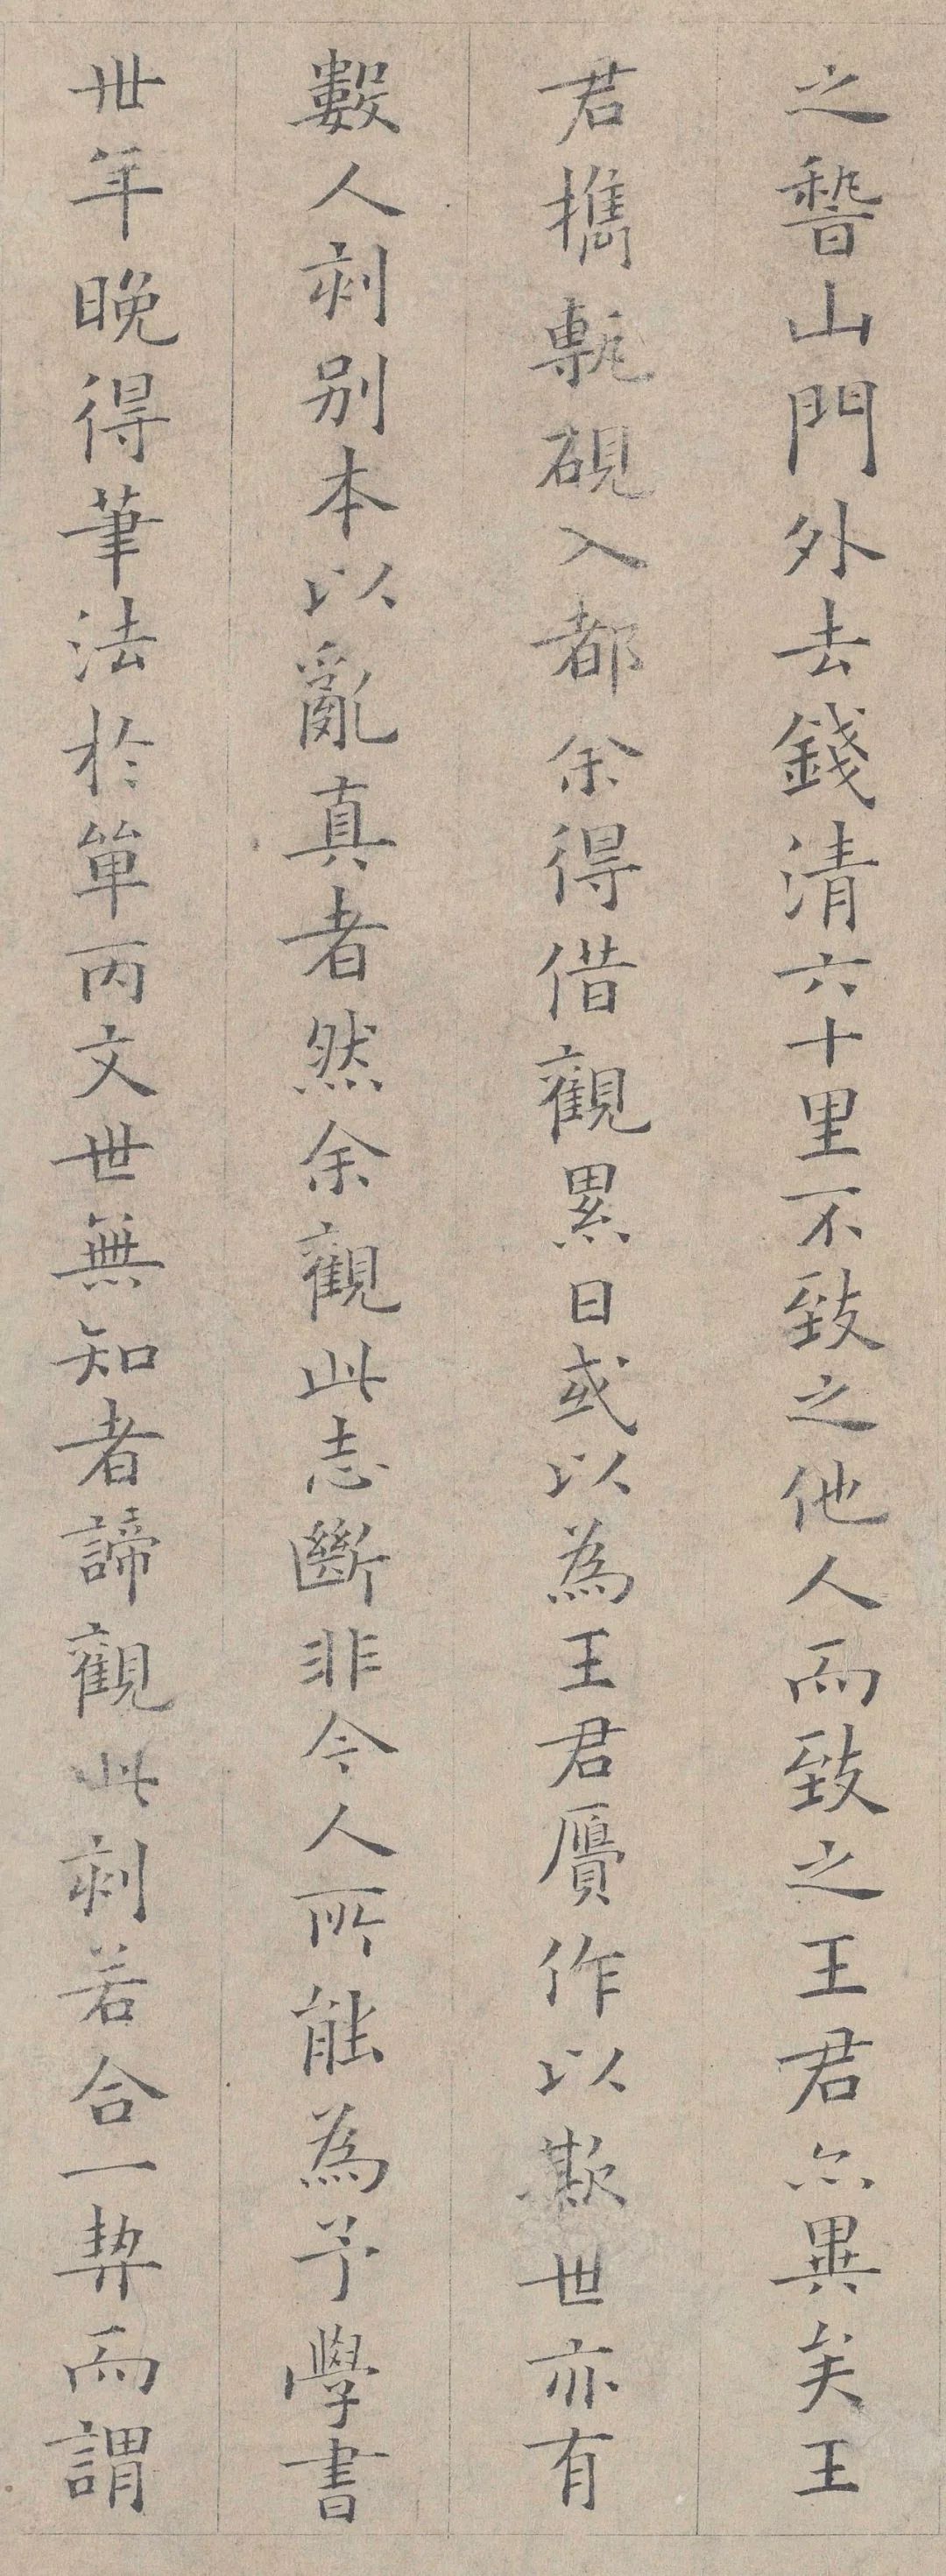 之稽山門外去錢清六十里不致之他人而致之王君亦異矣王
君攜甎硯入都余得借觀累日或以為王君贗作以欺世亦有
數人刻別本以亂真者然余觀此志斷非今人所能為予學書
卅年晚得筆法於單丙文世無知者諦觀此刻若合一契而謂